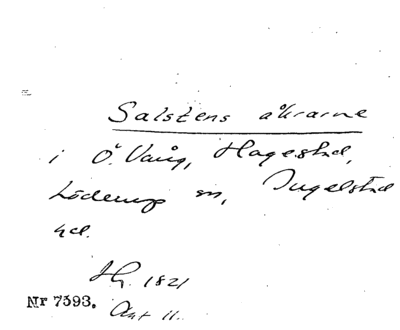 Salstens åkrarne
i Ö. Vång, Hagestad,
Löderup sn, Ingelstad
hd.
Hg. 1821
Nr 7393. Akt 11.